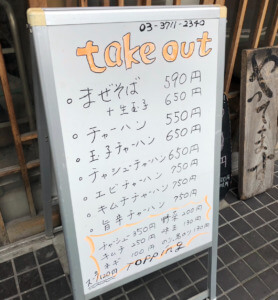 03-3711-2340
take out
。まぜそば 590円
+生玉子 650円
。チャーハン 550円
。玉子チャーハン 650円
。チャシューチャーハン 650円
。エビチャーハン 750円
。キムチチャーハン 750円
。旨辛チャーハン 750円
チャシュー 350円 野菜 200円
キムチ 250円 味玉 130円
ネギ 100円 のり 130円
TOPPING